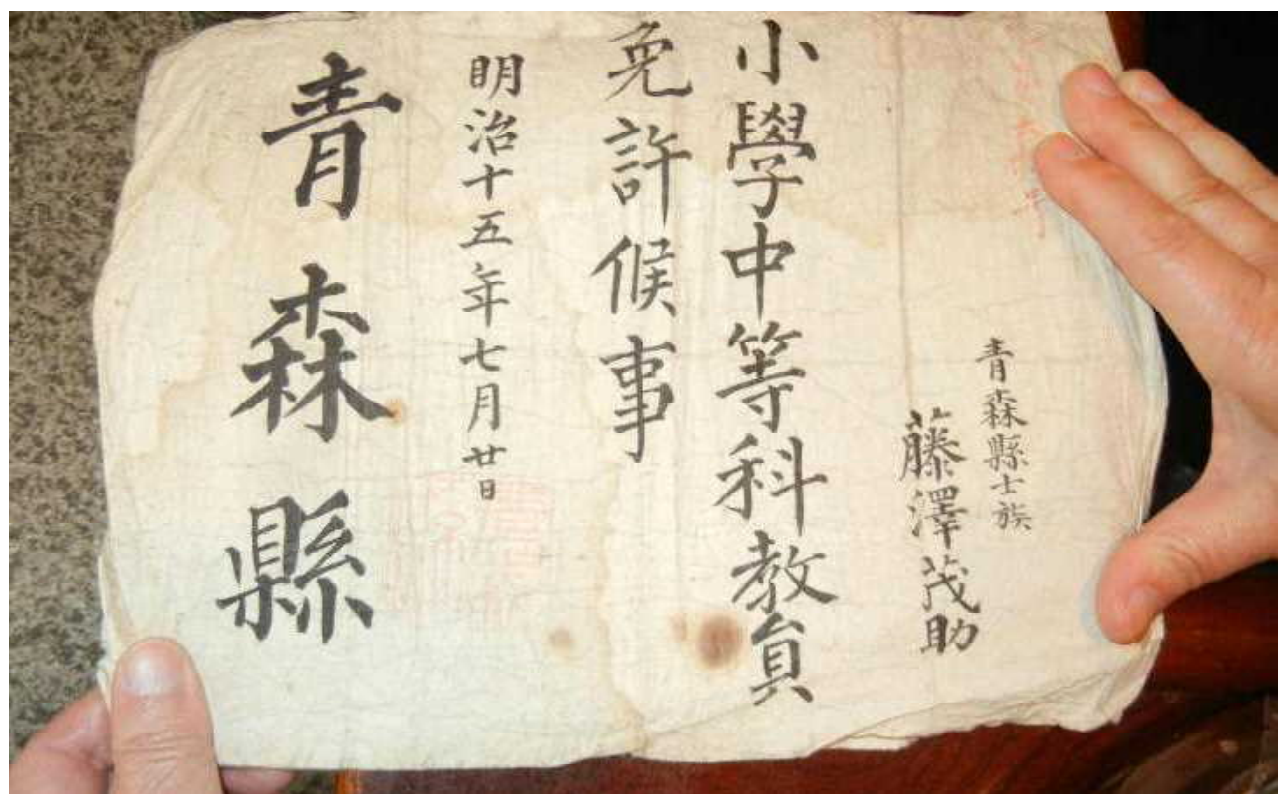 青森縣士族
藤澤茂助
小學中等科教員
免許候事
明治十五年七月廿日
青森縣